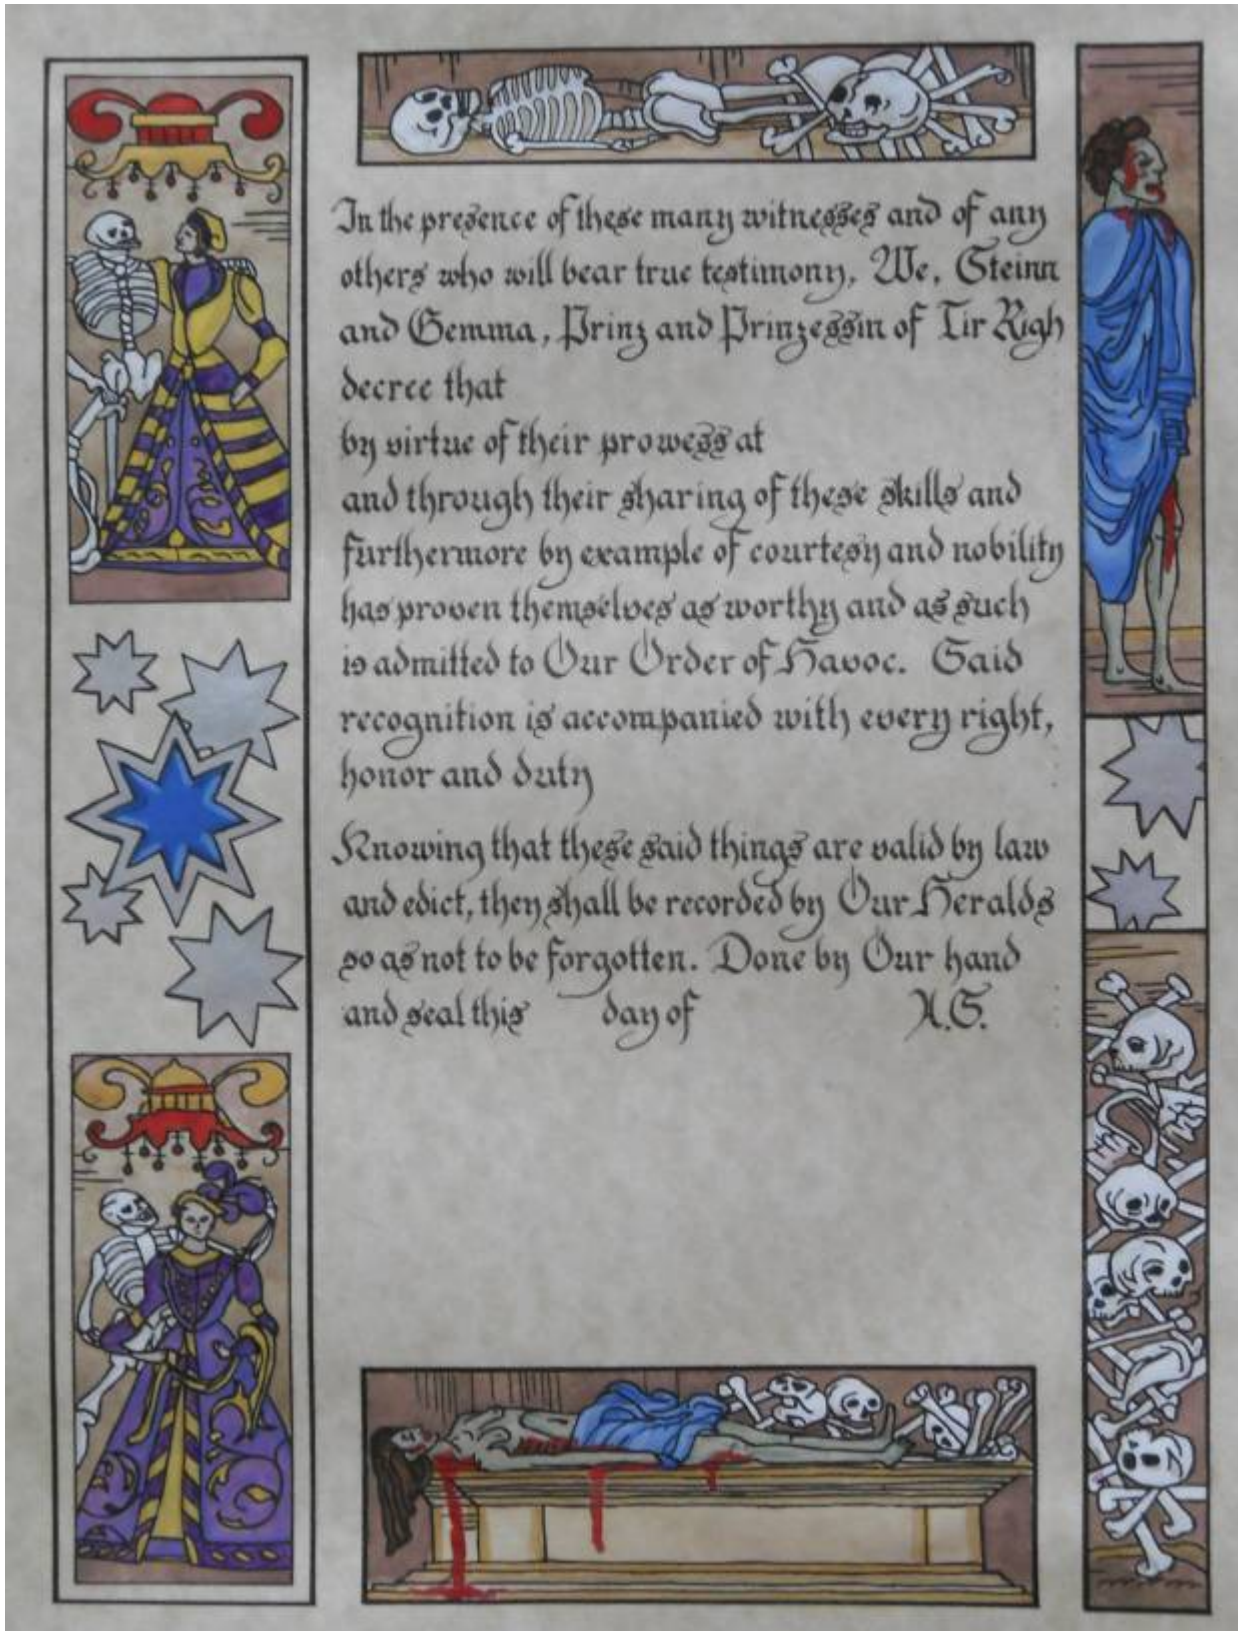 In the presence of these many witnesses and of any
others who will bear true testimony, We, Steinn
and Gemma, Prinz and Prinzessin of Tir Righ
decree that
by virtue of their prowess at
and through their sharing of these skills and
furthermore by example of courtesy and nobility
has proven themselves as worthy and as such
is admitted to Our Order of Havoc. Said
recognition is accompanied with every right,
honor and duty
Knowing that these said things are valid by law
and edict, they shall be recorded by Our Heralds
so as not to be forgotten. Done by Our hand
and seal this day of A.S.